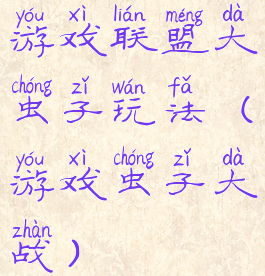 yóu xì lián méng dà
游戏联盟大
chóng zǐ wán fǎ
虫子玩法（
yóu xì chóng zǐ dà
游戏虫子大
zhàn
战）